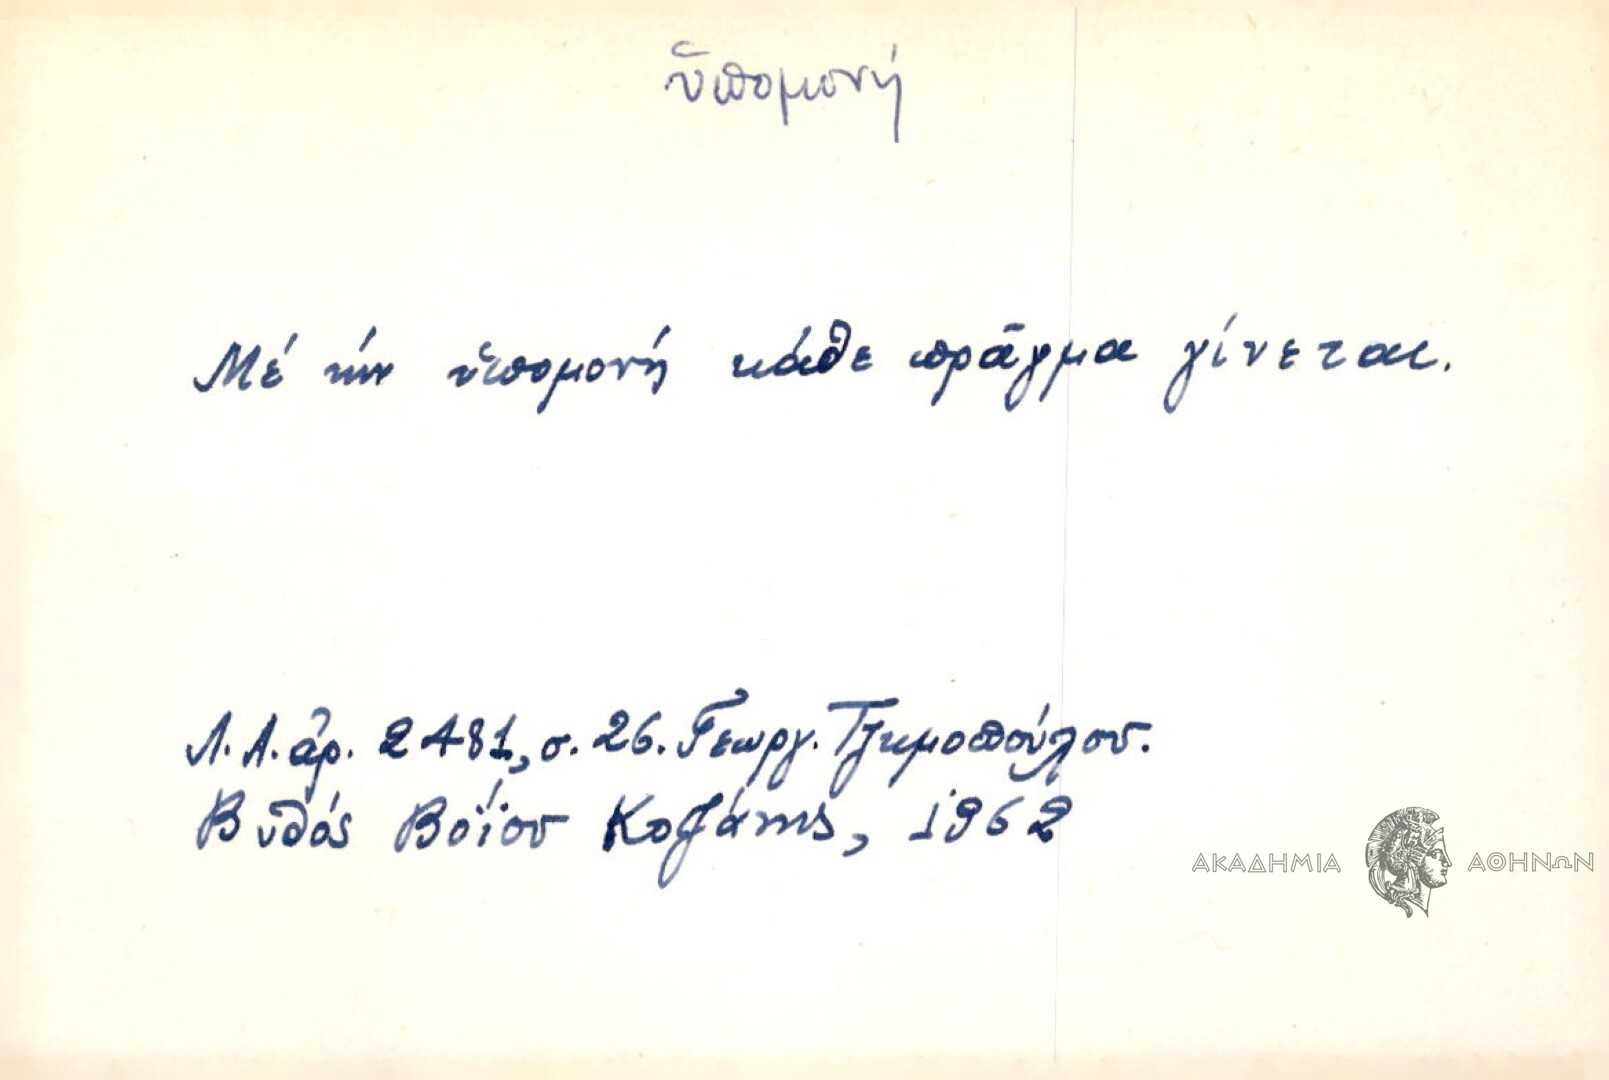 ὑπομονή
Μέ τήν ὑπομονή κάθε πρᾶγμα γίνεται.
Λ.Α. ἀρ. 2481, σ. 26. Γεωργ. Τζημοπούλου.
Βυθός Βοΐου Κοζάνης, 1962
ΑΚΑΔΗΜΙΑ ΑΘΗΝΩΝ